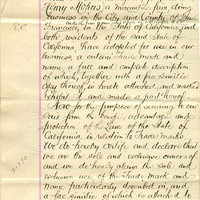 Henry Mohns a mercantile firm doing
business in the City and County of San
Francisco, in the State of California and
both residents of the said State of
California have adopted for use in our
business a certain Trade mark and
name a full and complete description
of which, together with a fac simile
copy thereof, is hereto attached and marked
Exhibit A and made a part hereof
Now for the purpose of securing to our
selves firm the benefit, advantages and
protection of the Laws of the State of
California in relation to Trade marks
we do hereby certify and declare that
we are the sole and exclusive owners of
and we do hereby claim the sole and
exclusive use of the Trade mark and
name particularly described in, and
a fac simile of which is attached to